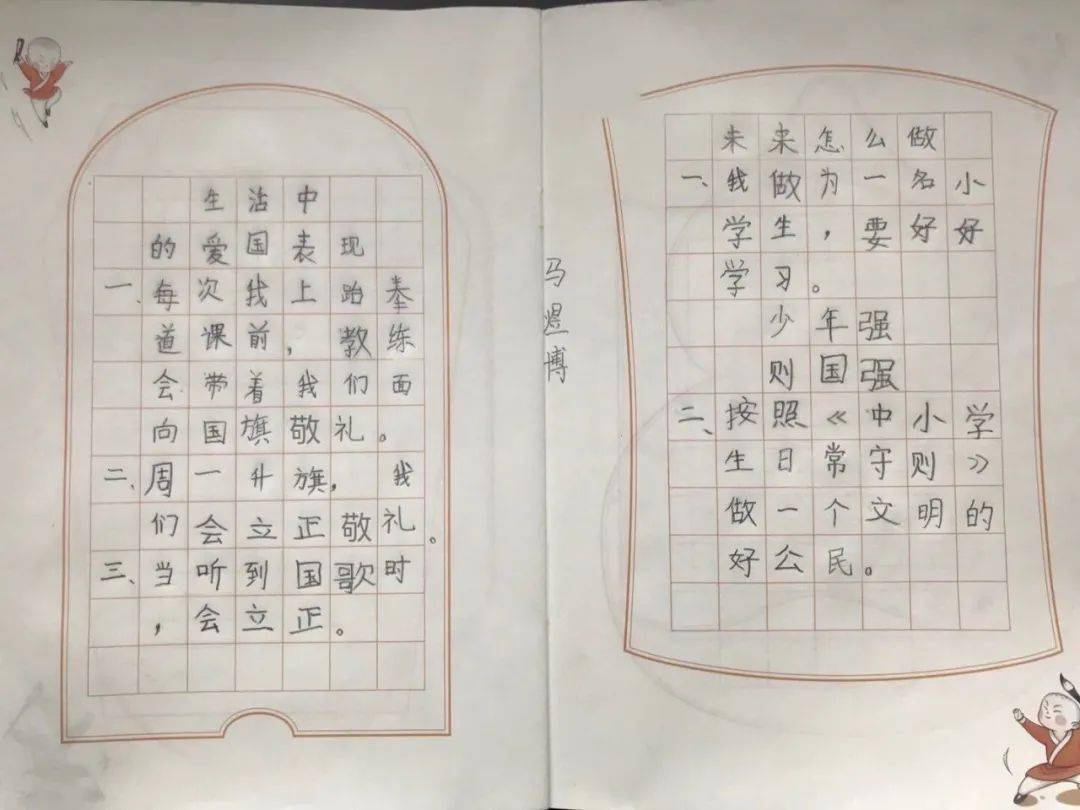 生活中
的爱国表现
一、每次我上跆拳
道课前，教练
会带着我们面
向国旗敬礼。
二、周一升旗，我
们会立正敬礼。
三、当听到国歌时
，会立正。
马煜博
未来怎么做
一、我做为一名小
学生，要好好
学习。
少年强
则国强
二、按照《中小学
生日常守则》
做一个文明的
好公民。